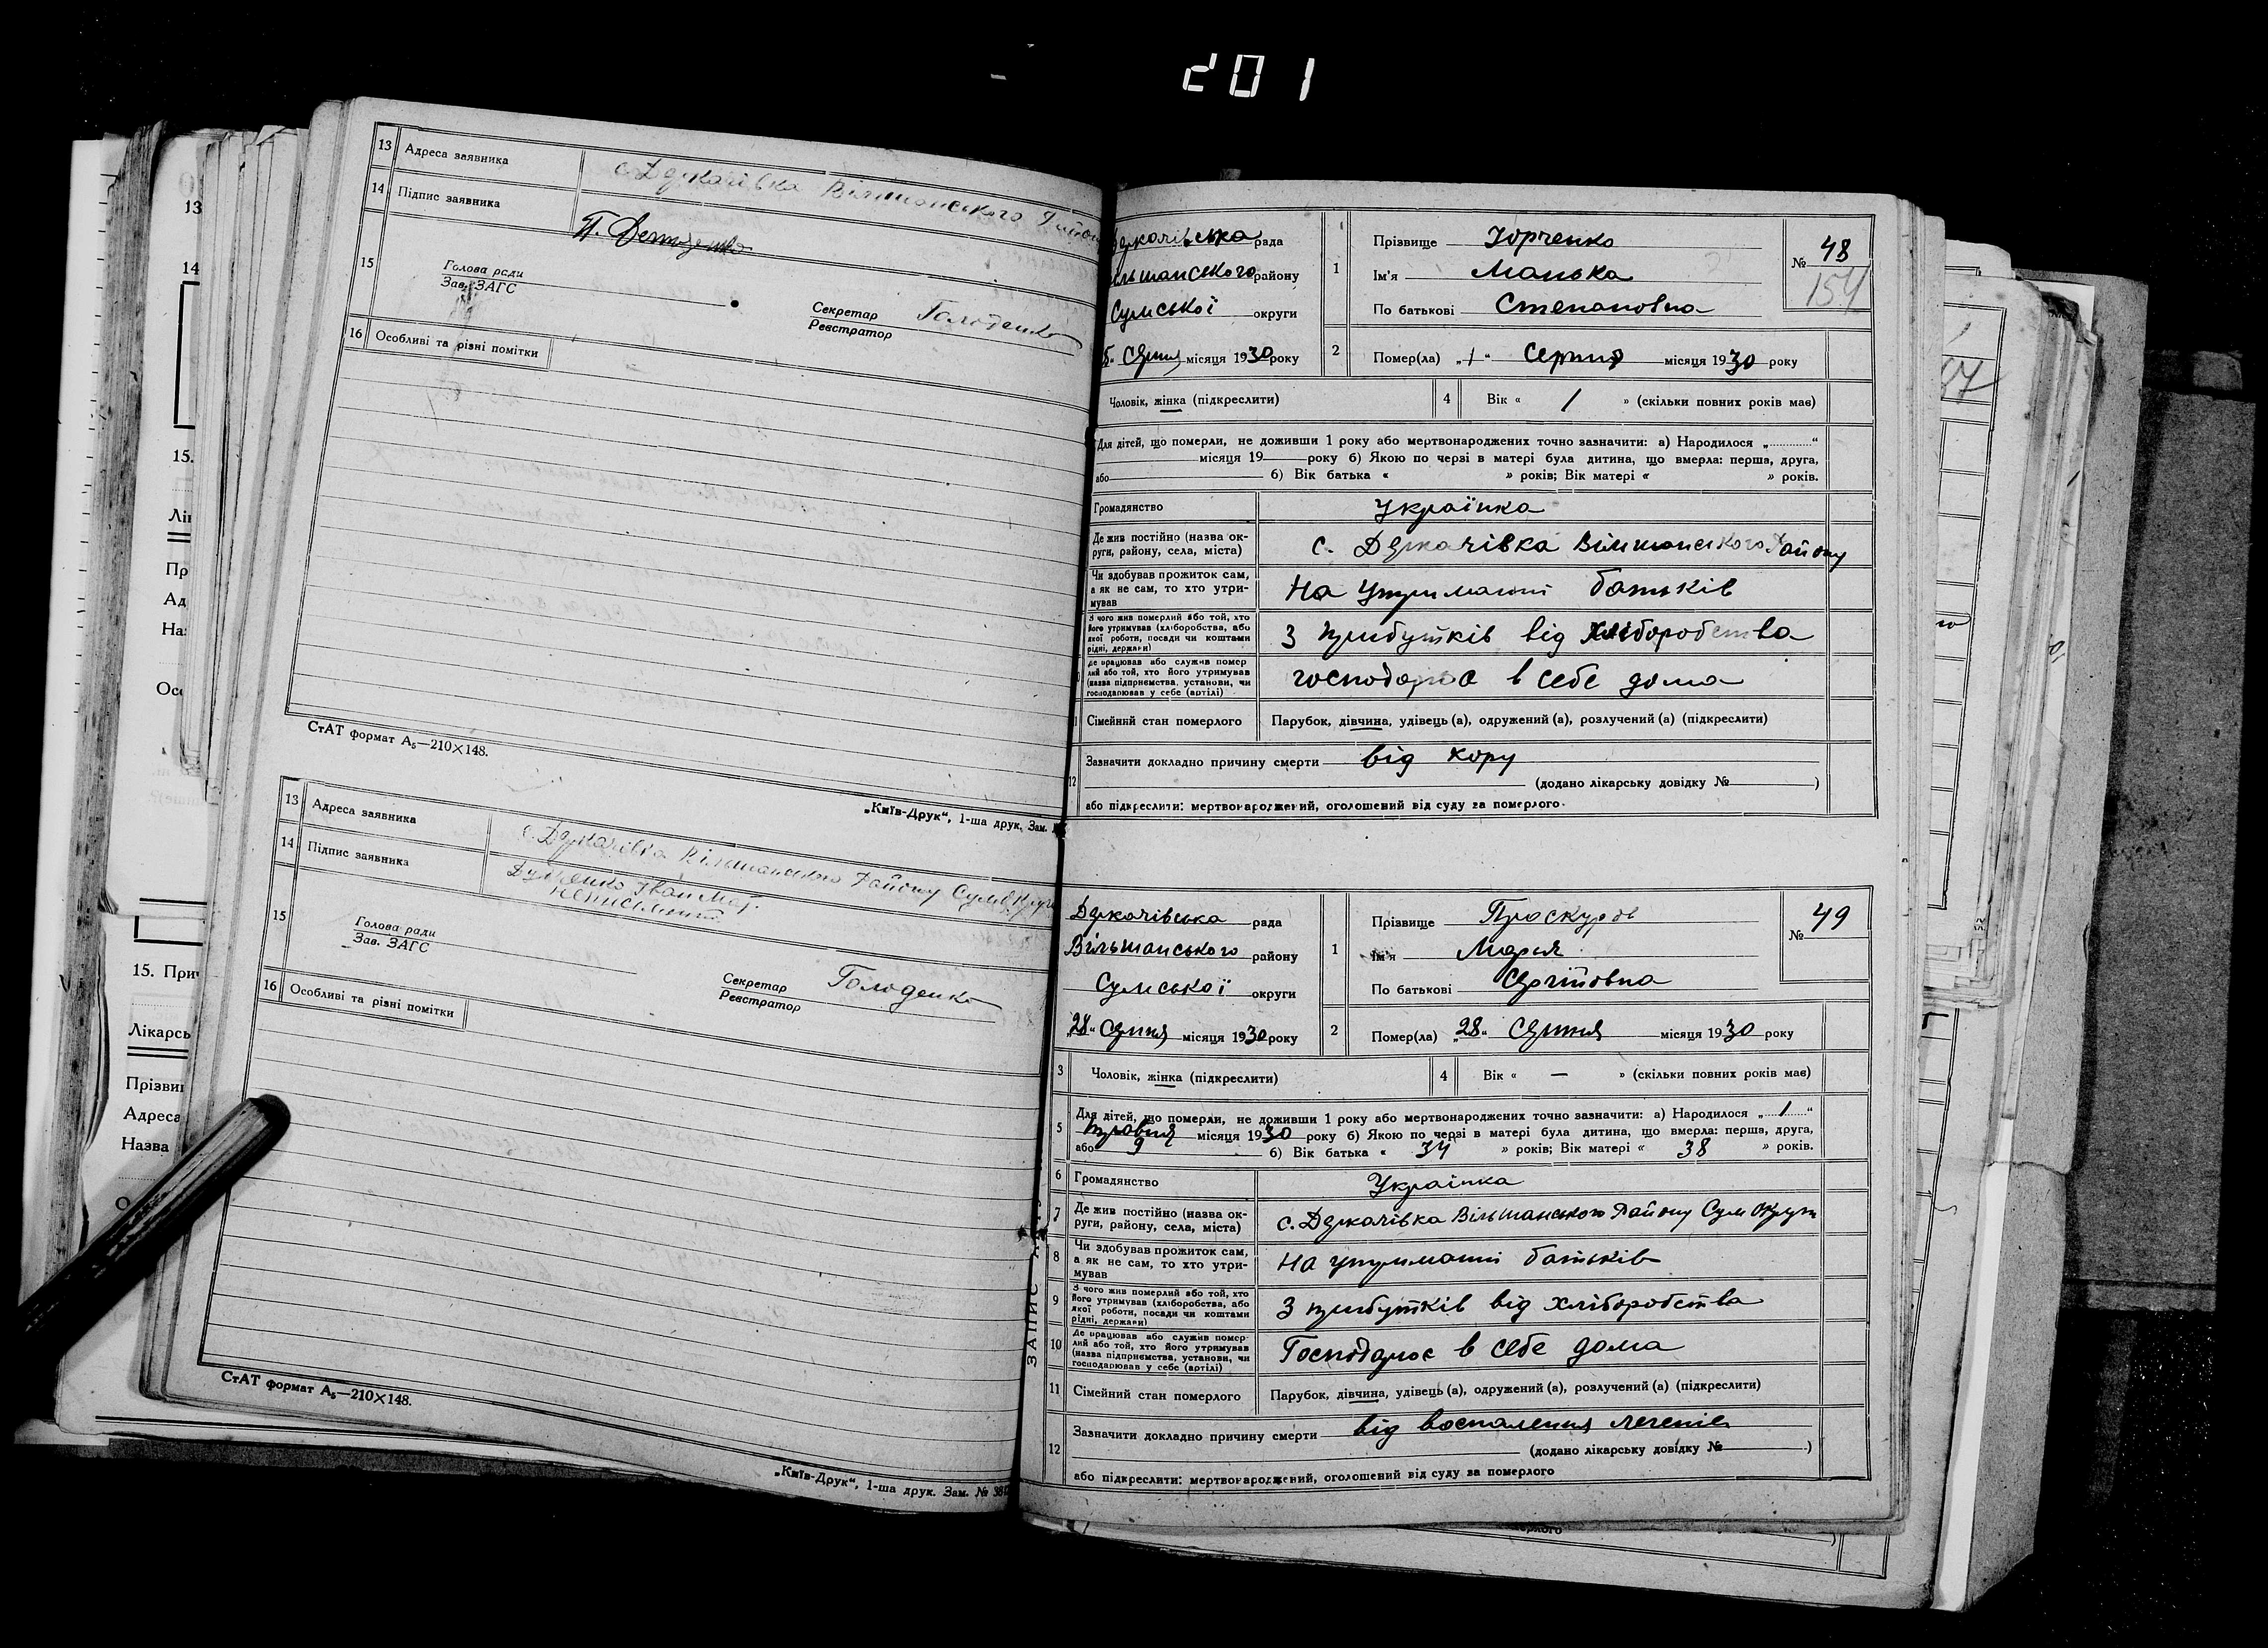 201
13 Адреса заявника с. Деркачівка Вільшанського Району
14 Підпис заявника
15 Голова ради
Зав. ЗАГС
Секретар Голоденко
Реєстратор
16 Особливі та різні помітки
СтАТ формат А₅—210×148.
„Київ-Друк“, 1-ша друк. Зам.
13 Адреса заявника с. Деркачівка Вільшанського Району Сумськ
14 Підпис заявника Іван
неписьмений
15 Голова ради
Зав. ЗАГС
Секретар Голоденко
Реєстратор
16 Особливі та різні помітки
СтАТ формат А₅—210×148.
„Київ-Друк“, 1-ша друк. Зам. № 38
Деркачівська рада
Вільшанського району
Сумської округи
Серпня місяця 1930 року
1 Прізвище Юрченко
Ім'я Манька
По батькові Степановна
№ 48
154
2 Помер(ла) „1“ Серпня місяця 1930 року
Чоловік, жінка (підкреслити)
4 Вік « 1 » (скільки повних років мав)
Для дітей, що померли, не доживши 1 року або мертвонароджених точно зазначити: а) Народилося „ “
місяця 19 року б) Якою по черзі в матері була дитина, що вмерла: перша, друга,
або б) Вік батька « » років; Вік матері « » років.
Громадянство Українка
Де жив постійно (назва ок-
руги, району, села, міста) с. Деркачівка Вільшанського Району
Чи здобував прожиток сам,
а як не сам, то хто утри-
мував На утриманні батьків
З чого жив померлий або той, хто
його утримував (хліборобства, або
якої роботи, посади чи коштами
рідні, держави) З прибутків від хліборобства
Де працював або служив помер
лий або той, хто його утримував
(назва підприємства, установи, чи
господарював у себе (артілі) господарює в себе дома
Сімейний стан померлого Парубок, дівчина, удівець (а), одружений (а), розлучений (а) (підкреслити)
12 Зазначити докладно причину смерти від кору
(додано лікарську довідку № )
або підкреслити: мертвонароджений, оголошений від суду за померлого.
Деркачівська рада
Вільшанського району
Сумської округи
„28“ Серпня місяця 1930 року
1 Прізвище
Ім'я Марія
По батькові Сергіївна
№ 49
2 Помер(ла) „28“ Серпня місяця 1930 року
3 Чоловік, жінка (підкреслити)
4 Вік « — » (скільки повних років мав)
5 Для дітей, що померли, не доживши 1 року або мертвонароджених точно зазначити: а) Народилося „1“
травня місяця 1930 року б) Якою по черзі в матері була дитина, що вмерла: перша, друга,
або 9 б) Вік батька « 34 » років; Вік матері « 38 » років.
6 Громадянство Українка
7 Де жив постійно (назва ок-
руги, району, села, міста) с. Деркачівка Вільшанського Району Сум округи
8 Чи здобував прожиток сам,
а як не сам, то хто утри-
мував На утриманні батьків
9 З чого жив померлий або той, хто
його утримував (хліборобства, або
якої роботи, посади чи коштами
рідні, держави) З прибутків від хліборобства
10 Де працював або служив помер-
лий або той, хто його утримував
(назва підприємства, установи, чи
господарював у себе (артілі) Господарює в себе дома
11 Сімейний стан померлого Парубок, дівчина, удівець (а), одружений (а), розлучений (а) (підкреслити)
12 Зазначити докладно причину смерти від воспаления легенів
(додано лікарську довідку № )
або підкреслити: мертвонароджений, оголошений від суду за померлого